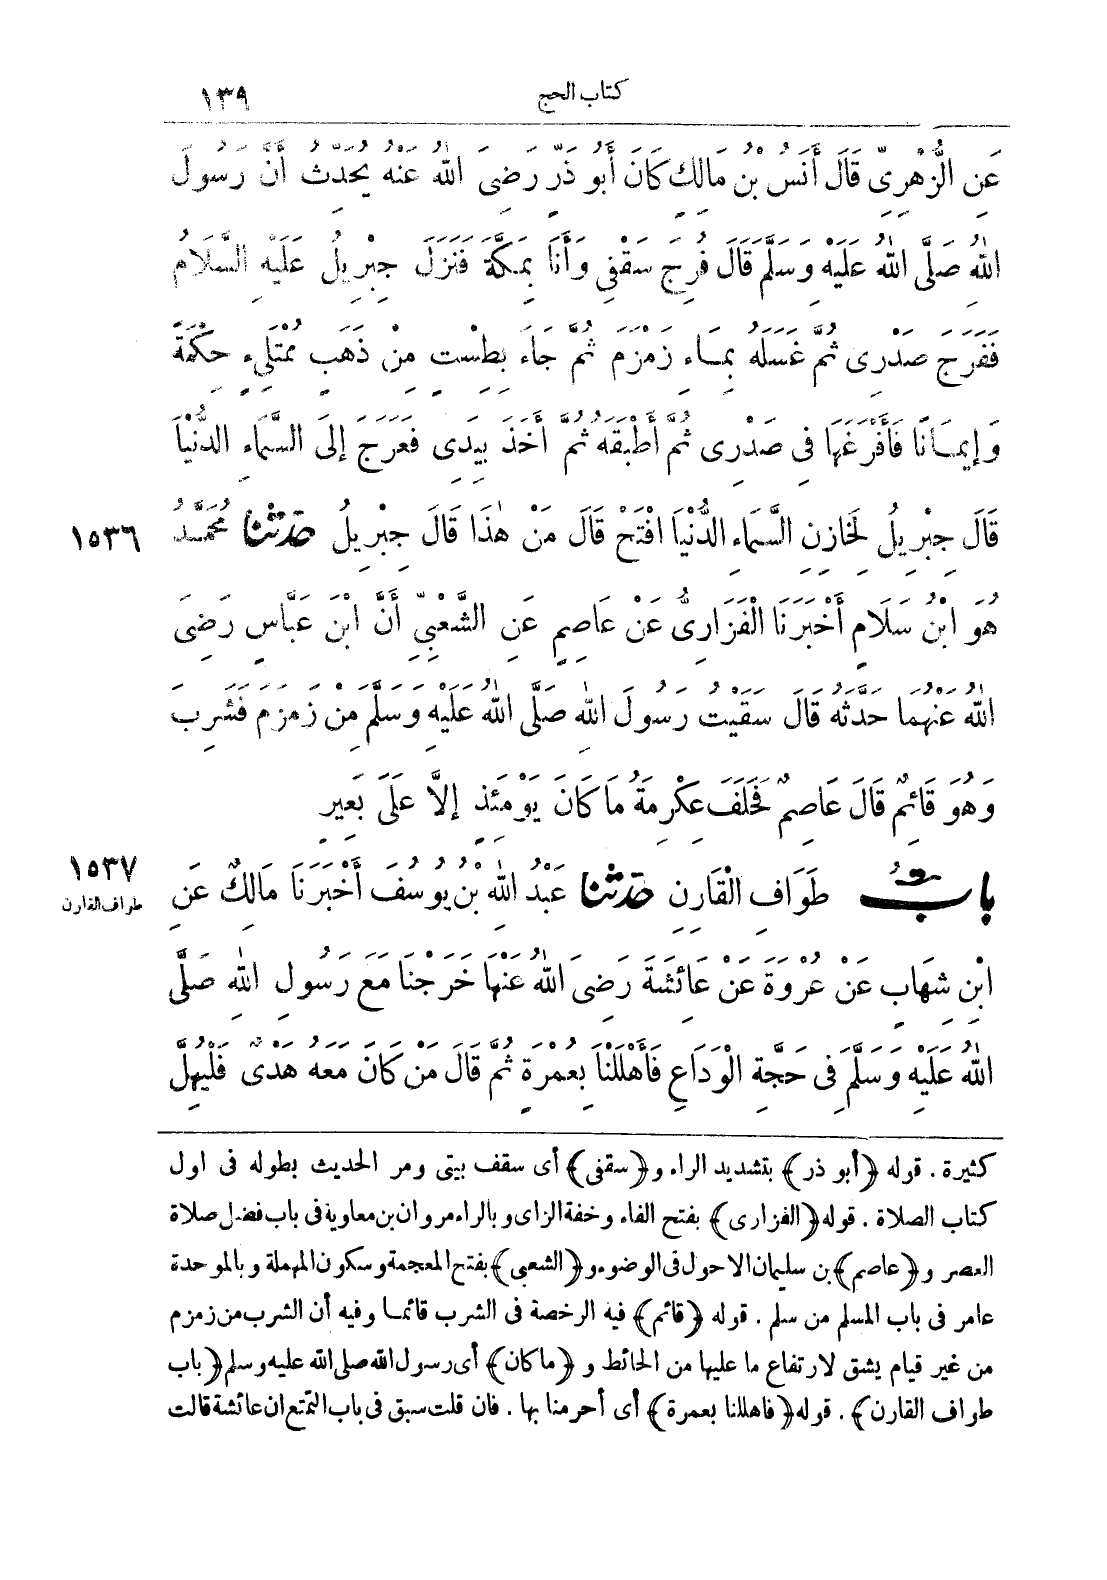 كتاب الحج ١٣٩
عَنِ الزُّهْرِىِّ قَالَ أَنَسُ بْنُ مَالِكٍ كَانَ أَبُو ذَرٍّ رَضِىَ اللهُ عَنْهُ يُحَدِّثُ أَنَّ رَسُولَ
اللهِ صَلَّى اللهُ عَلَيْهِ وَسَلَّمَ قَالَ فُرِجَ سَقْفِى وَأَنَا بِمَكَّةَ فَنَزَلَ جِبْرِيلُ عَلَيْهِ السَّلَامُ
فَفَرَجَ صَدْرِى ثُمَّ غَسَلَهُ بِمَاءِ زَمْزَمَ ثُمَّ جَاءَ بِطِسْتٍ مِنْ ذَهَبٍ مُمْتَلِىءٍ حِكْمَةً
وَإِيمَانًا فَأَفْرَغَهَا فِى صَدْرِى ثُمَّ أَطْبَقَهُ ثُمَّ أَخَذَ بِيَدِى فَعَرَجَ إِلَى السَّمَاءِ الدُّنْيَا
قَالَ جِبْرِيلُ لِخَازِنِ السَّمَاءِ الدُّنْيَا افْتَحْ قَالَ مَنْ هٰذَا قَالَ جِبْرِيلُ حَدَّثَنَا مُحَمَّدُ ١٥٣٦
هُوَ ابْنُ سَلَامٍ أَخْبَرَنَا الْفَزَارِىُّ عَنْ عَاصِمٍ عَنِ الشَّعْبِىِّ أَنَّ ابْنَ عَبَّاسٍ رَضِىَ
اللهُ عَنْهُمَا حَدَّثَهُ قَالَ سَقَيْتُ رَسُولَ اللهِ صَلَّى اللهُ عَلَيْهِ وَسَلَّمَ مِنْ زَمْزَمَ فَشَرِبَ
وَهُوَ قَائِمٌ قَالَ عَاصِمٌ فَحَلَفَ عِكْرِمَةُ مَا كَانَ يَوْمَئِذٍ إِلَّا عَلَى بَعِيرٍ
بَابُ طَوَافِ الْقَارِنِ حَدَّثَنَا عَبْدُ اللهِ بْنُ يُوسُفَ أَخْبَرَنَا مَالِكٌ عَنِ ١٥٣٧
طواف القارن
ابْنِ شِهَابٍ عَنْ عُرْوَةَ عَنْ عَائِشَةَ رَضِىَ اللهُ عَنْهَا خَرَجْنَا مَعَ رَسُولِ اللهِ صَلَّى
اللهُ عَلَيْهِ وَسَلَّمَ فِى حَجَّةِ الْوَدَاعِ فَأَهْلَلْنَا بِعُمْرَةٍ ثُمَّ قَالَ مَنْ كَانَ مَعَهُ هَدْىٌ فَلْيُهِلَّ
كثيرة . قوله ﴿أبو ذر﴾ بتشديد الراء و﴿سقفى﴾ أى سقف بيتى ومر الحديث بطوله فى اول
كتاب الصلاة . قوله ﴿الفزارى﴾ بفتح الفاء وخفة الزاى وبالراء مروان بن معاوية فى باب فضل صلاة
العصر و﴿عاصم﴾ بن سليمان الاحول فى الوضوء و﴿الشعبى﴾ بفتح المعجمة وسكون المهملة وبالموحدة
عامر فى باب المسلم من سلم . قوله ﴿قائم﴾ فيه الرخصة فى الشرب قائما وفيه أن الشرب من زمزم
من غير قيام يشق لارتفاع ما عليها من الحائط و ﴿ما كان﴾ أى رسول الله صلى الله عليه وسلم ﴿باب
طواف القارن﴾ . قوله ﴿فاهللنا بعمرة﴾ أى أحرمنا بها . فان قلت سبق فى باب التمتع ان عائشة قالت